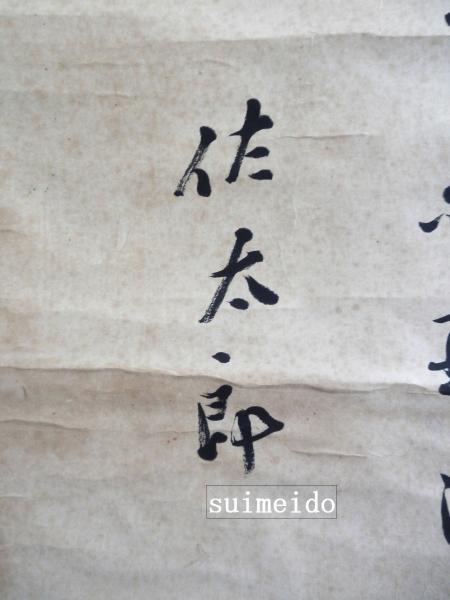 佐太郎
suimeido